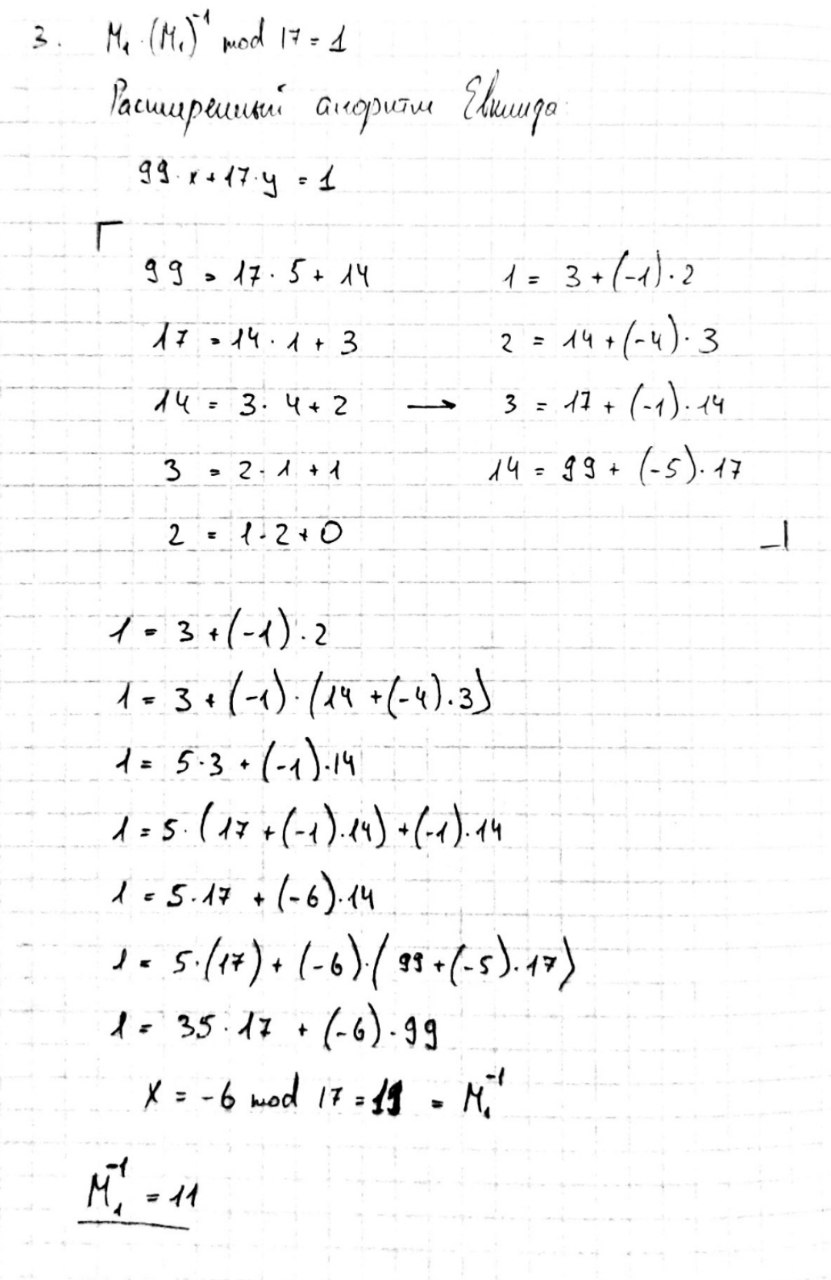 3. M₁·(M₁)⁻¹ mod 17 = 1
Расширенный алгоритм Евклида:
99·x + 17·y = 1
99 = 17·5 + 14 1 = 3 + (-1)·2
17 = 14·1 + 3 2 = 14 + (-4)·3
14 = 3·4 + 2 → 3 = 17 + (-1)·14
3 = 2·1 + 1 14 = 99 + (-5)·17
2 = 1·2 + 0
1 = 3 + (-1)·2
1 = 3 + (-1)·(14 + (-4)·3)
1 = 5·3 + (-1)·14
1 = 5·(17 + (-1)·14) + (-1)·14
1 = 5·17 + (-6)·14
1 = 5·(17) + (-6)·(99 + (-5)·17)
1 = 35·17 + (-6)·99
x = -6 mod 17 = 11 = M₁⁻¹
M₁⁻¹ = 11